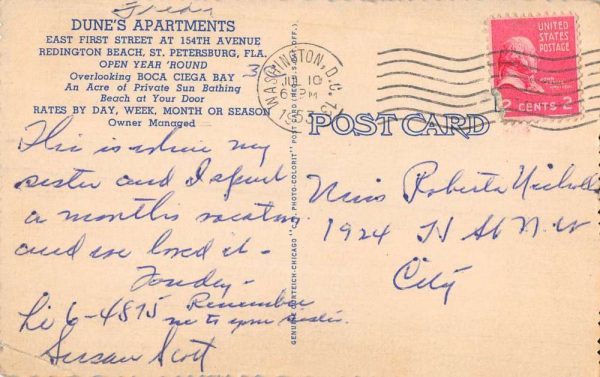 DUNE'S APARTMENTS
EAST FIRST STREET AT 154TH AVENUE
REDINGTON BEACH, ST. PETERSBURG, FLA.
OPEN YEAR 'ROUND
Overlooking BOCA CIEGA BAY
An Acre of Private Sun Bathing
Beach at Your Door
RATES BY DAY, WEEK, MONTH OR SEASON
Owner Managed
This is where my
sister and I spent
a month's vacation
and we loved it -
Fondly -
Li 6-4815 Remember
me to your sister.
Susan Scott
GENUINE CURTEICH-CHICAGO "C.T. PHOTO-COLORIT" POST CARD (REG. U.S. PAT. OFF.)
WASHINGTON, D.C.
JUL 10
6 PM
1953
UNITED
STATES
POSTAGE
2 CENTS 2
POST CARD
Miss Roberta Nichols
1924 St N.W
City